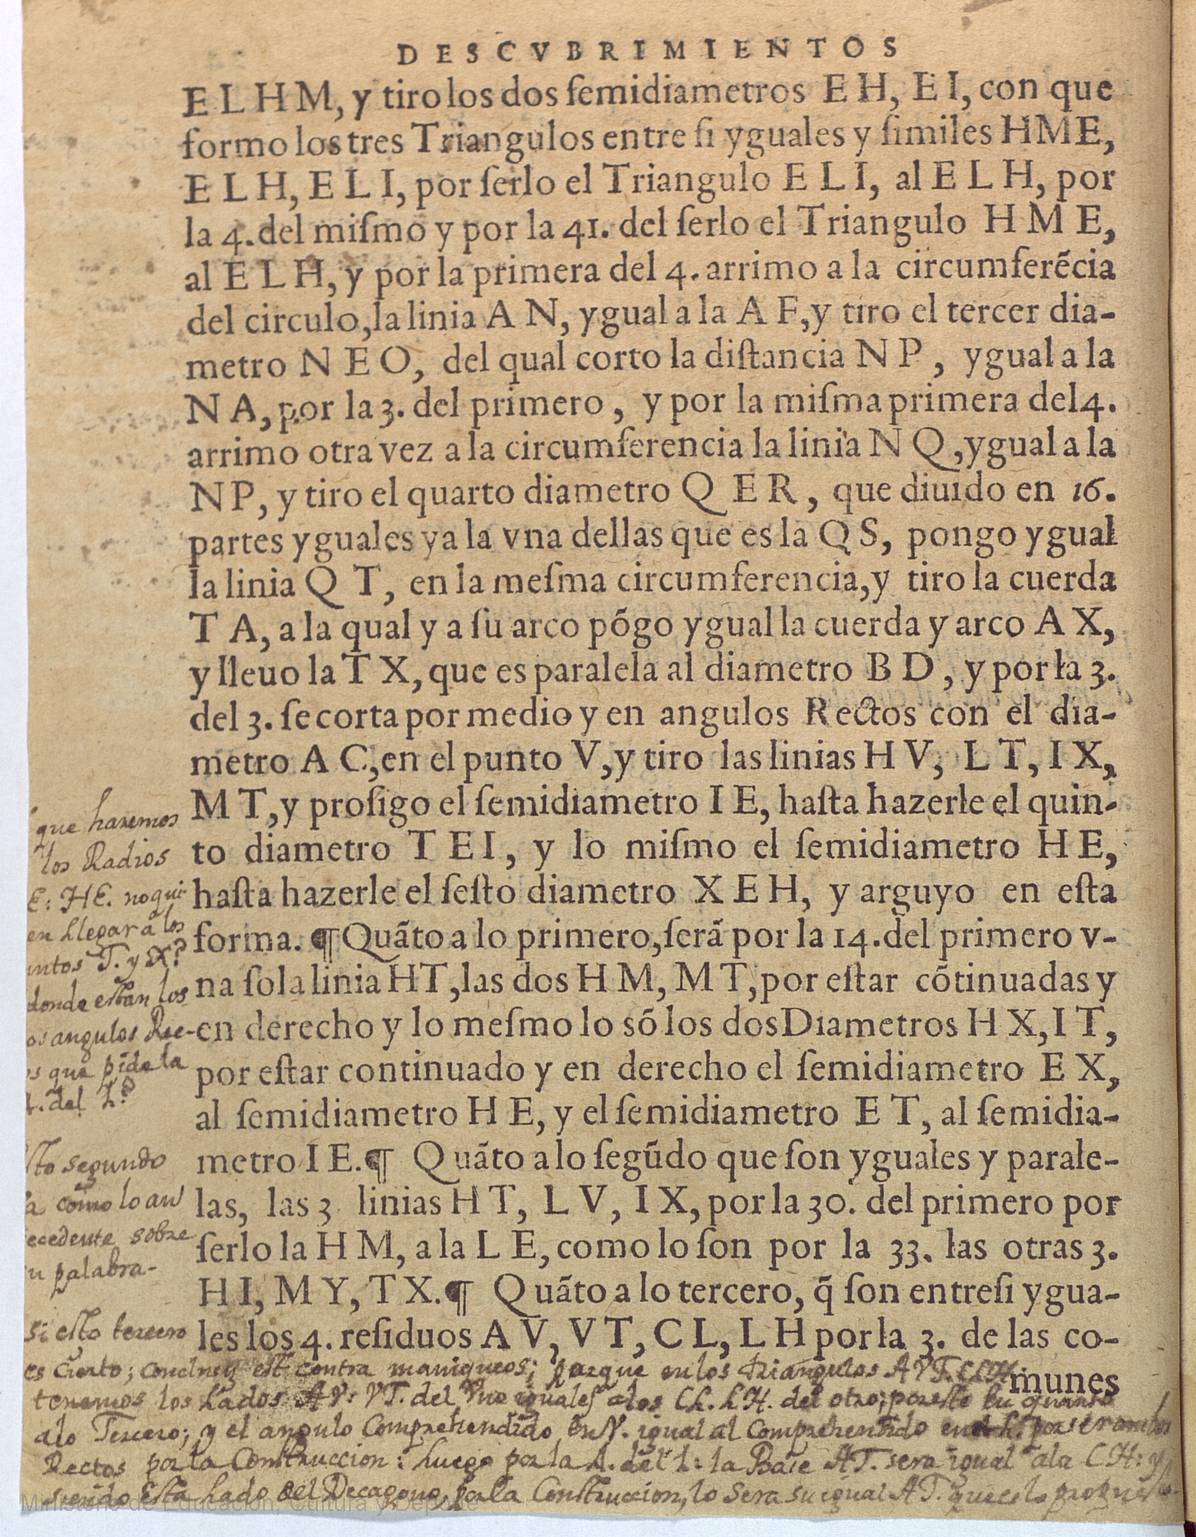 DESCVBRIMIENTOS
E L H M, y tiro los dos ſemidiametros E H, E I, con que
formo los tres Triangulos entre ſi yguales y ſimiles HME,
E L H, E L I, por ſerlo el Triangulo E L I, al E L H, por
la 4. del miſmo y por la 41. del ſerlo el Triangulo H M E,
al E L H, y por la primera del 4. arrimo a la circumferẽcia
del circulo, la linia A N, ygual a la A F, y tiro el tercer dia-
metro N E O, del qual corto la diſtancia N P, ygual a la
N A, por la 3. del primero, y por la miſma primera del 4.
arrimo otra vez a la circumferencia la linia N Q, ygual a la
N P, y tiro el quarto diametro Q E R, que diuido en 16.
partes yguales y a la vna dellas que es la Q S, pongo ygual
la linia Q T, en la meſma circumferencia, y tiro la cuerda
T A, a la qual y a ſu arco põgo ygual la cuerda y arco A X,
y lleuo la T X, que es paralela al diametro B D, y por la 3.
del 3. ſe corta por medio y en angulos Rectos con el dia-
metro A C, en el punto V, y tiro las linias H V, L T, I X,
M T, y proſigo el ſemidiametro I E, haſta hazerle el quin-
to diametro T E I, y lo miſmo el ſemidiametro H E,
haſta hazerle el ſeſto diametro X E H, y arguyo en eſta
forma. ¶ Quãto a lo primero, ſerã por la 14. del primero v-
na ſola linia HT, las dos H M, M T, por eſtar cõtinuadas y
en derecho y lo meſmo lo sõ los dos Diametros H X, I T,
por eſtar continuado y en derecho el ſemidiametro E X,
al ſemidiametro H E, y el ſemidiametro E T, al ſemidia-
metro I E. ¶ Quãto a lo ſegũdo que ſon yguales y parale-
las, las 3 linias H T, L V, I X, por la 30. del primero por
ſerlo la H M, a la L E, como lo ſon por la 33. las otras 3.
H I, M Y, T X. ¶ Quãto a lo tercero, q̃ ſon entreſi ygua-
les los 4. reſiduos A V, V T, C L, L H por la 3. de las co-
munes
que haremos
los Radios
E: HE. no qui
en llegar a los
untos T. y X?
donde estan los
os angulos Rec-
os que pide la
4. del 1.?
sto segundo
a como lo an
ecedente sobre
su palabra-
si esto tercero
es cierto; conclusũ est contra maniqueos; porque en los triangulos AVT. CLH.
tenemos los Lados AV. VT. del Vno iguales a los CL. LH. del otro; por este en quanto
alo Tercero; y el angulo Comprehendido en V. igual al Comprehendido en L. por ser ambos
Rectos por la Construccion: luego por la 4. del 1: la Base AT. sera igual ala CH: y
siendo Esta Lado del Decagono, por la Construccion, lo sera su igual AT. que es lo